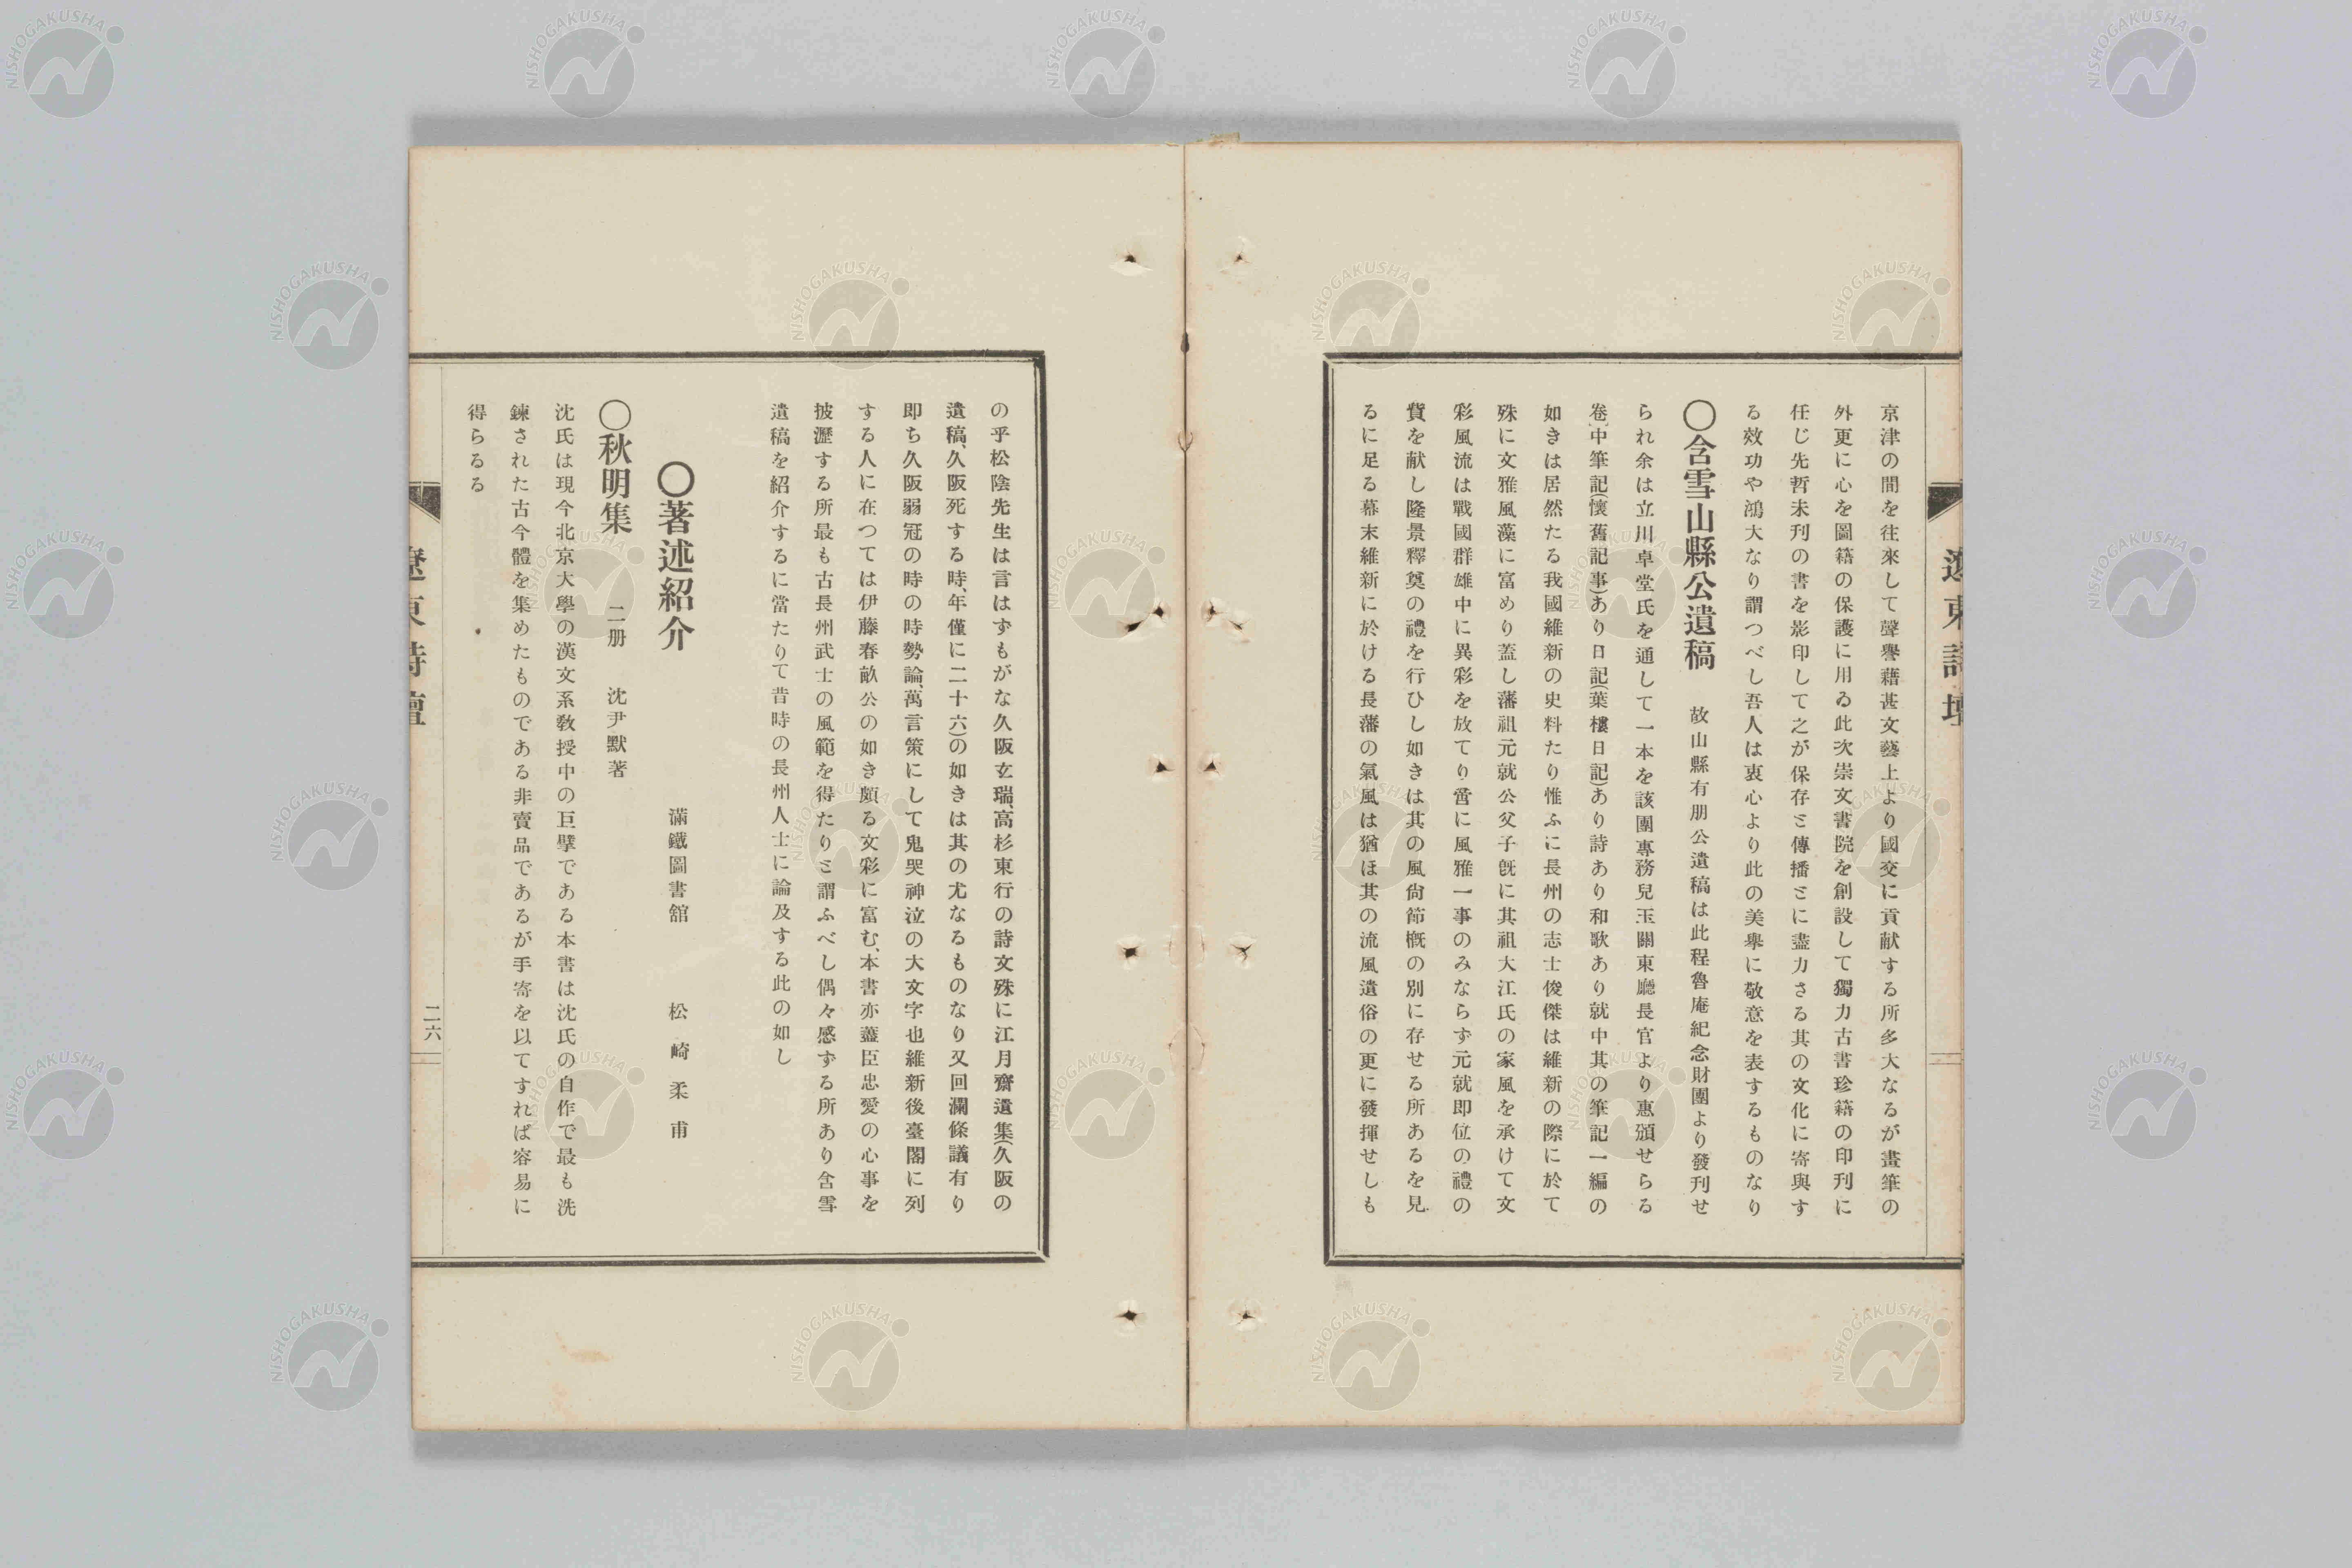 遼東詩壇
京津の間を往來して聲譽藉甚文藝上より國交に貢献する所多大なるが畫筆の
外更に心を圖籍の保護に用ゐ此次崇文書院を創設して獨力古書珍籍の印刊に
任じ先哲未刊の書を影印して之が保存と傳播とに盡力さる其の文化に寄與す
る效功や鴻大なり謂つべし吾人は衷心より此の美舉に敬意を表するものなり
〇含雪山縣公遺稿 故山縣有朋公遺稿は此程魯庵紀念財團より發刊せ
られ余は立川卓堂氏を通して一本を該團專務兒玉關東廳長官より惠頒せらる
卷、中筆記(懷舊記事)あり日記(葉樓日記)あり詩あり和歌あり就中其の筆記一編の
如きは居然たる我國維新の史料たり惟ふに長州の志士俊傑は維新の際に於て
殊に文雅風藻に富めり蓋し藩祖元就公父子旣に其祖大江氏の家風を承けて文
彩風流は戰國群雄中に異彩を放てり啻に風雅一事のみならず元就即位の禮の
貲を献し隆景釋奠の禮を行ひし如きは其の風尙節概の別に存せる所あるを見
るに足る幕末維新に於ける長藩の氣風は猶ほ其の流風遺俗の更に發揮せしも
の乎松陰先生は言はずもがな久阪玄瑞、高杉東行の詩文殊に江月齋遺集(久阪の
遺稿、久阪死する時、年僅に二十六)の如きは其の尤なるものなり又回瀾條議有り
即ち久阪弱冠の時の時勢論、萬言策にして鬼哭神泣の大文字也維新後臺閣に列
する人に在つては伊藤春畝公の如き頗る文彩に富む、本書亦藎臣忠愛の心事を
披瀝する所最も古長州武士の風範を得たりと謂ふべし偶々感ずる所あり含雪
遺稿を紹介するに當たりて昔時の長州人士に論及する此の如し
〇著述紹介
滿鐵圖書舘 松崎柔甫
〇秋明集 二册 沈尹默著
沈氏は現今北京大學の漢文系敎授中の巨擘である本書は沈氏の自作で最も洗
鍊された古今體を集めたものである非賣品であるが手寄を以てすれば容易に
得らるる
遼東詩壇
二六